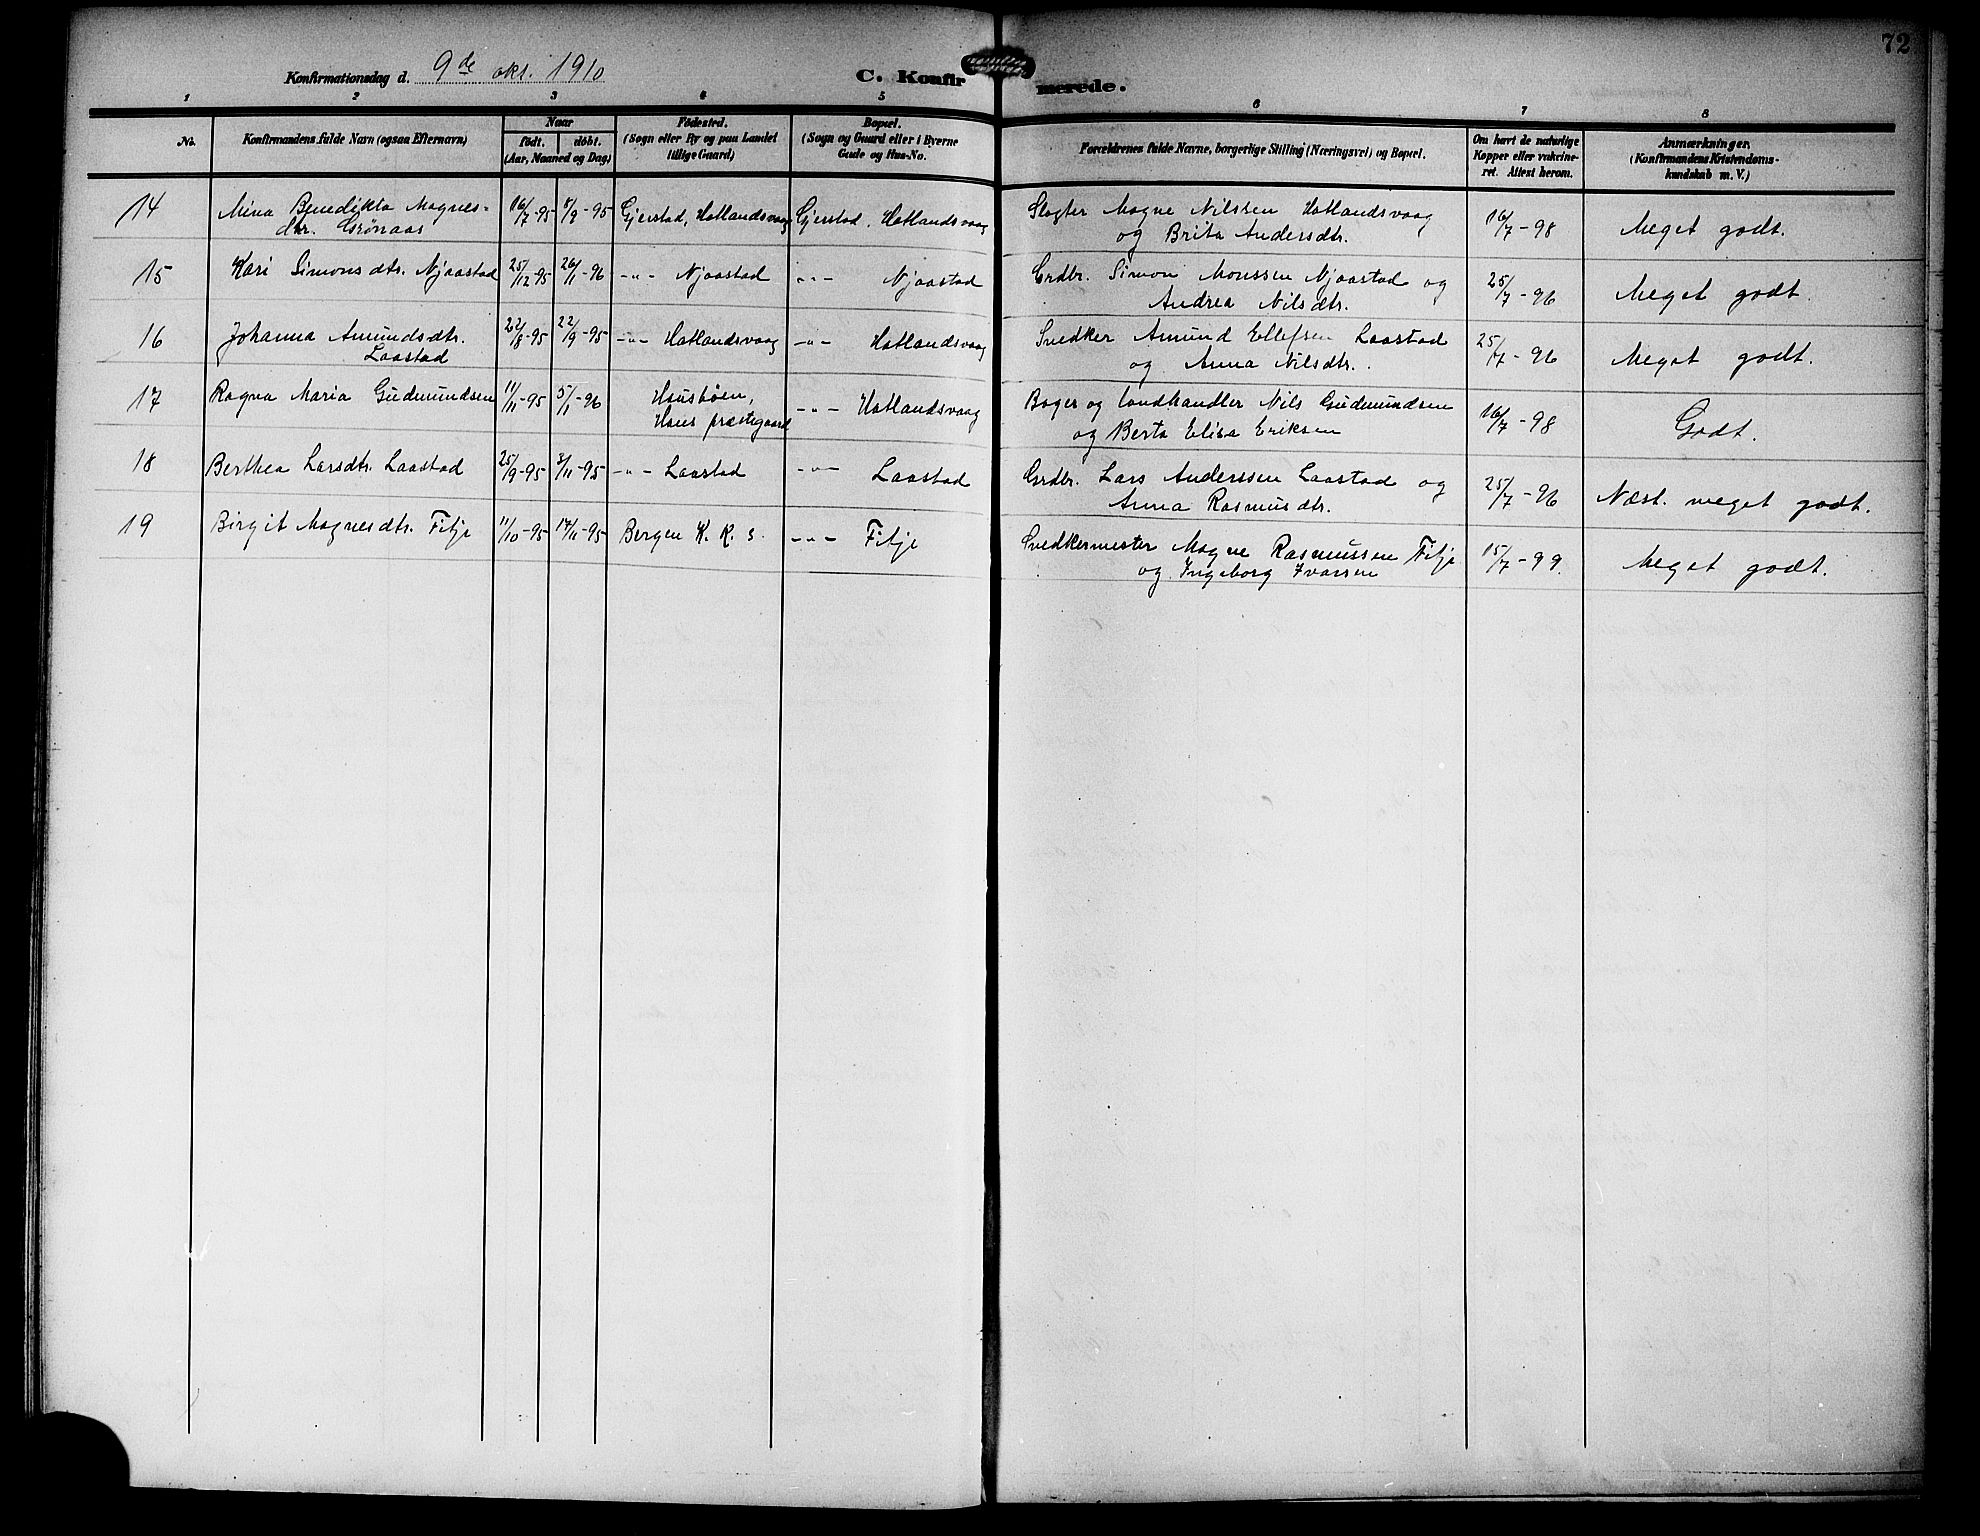 72
Konfirmationsdag d. 9de okt. 1910
C. Konfirmerede.
1 2 3 4 5 6 7 8
No.
Konfirmandens fulde Navn (ogsaa Efternavn)
Naar
født. døbt.
(Aar, Maaned og Dag)
Fødested.
(Sogn eller By og paa Landet
tillige Gaard)
Bopæl.
(Sogn og Gaard eller i Byerne
Gade og Hus-No.
Forældrenes fulde Navne, borgerlige Stilling (Næringsvei) og Bopæl.
Om havt de naturlige
Kopper eller vakcine-
ret. Attest herom.
Anmærkninger.
(Konfirmandens Kristendoms-
kundskab m. V.)
14 Mina Benedikta Magnes- 16/7-95 8/9-95 Gjerstad, Hatlandsvaag Gjerstad, Hatlandsvaag Slagter Magne Nilssen Hatlandsvaag 16/7-98 Meget godt.
dtr. Grønaas og Brita Andersdtr.
15 Kari Simonsdtr. Njaastad 25/12-95 26/1-96 -"- Njaastad -"- Njaastad Grdbr. Simon Monssen Njaastad og 25/7-96 Meget godt.
Andrea Nilsdtr.
16 Johanna Amundsdtr. 22/8-95 22/9-95 -"- Hatlandsvaag -"- Hatlandsvaag Snedker Amund Ellefsen Laastad 25/7-96 Meget godt.
Laastad og Anna Nilsdtr.
17 Ragna Maria Gudmundsen 11/11-95 5/1-96 Hausbøen, -"- Hatlandsvaag Bager og landhandler Nils Gudmundsen 16/7-98 Godt.
Haus præstegaard og Berta Elisa Eriksen
18 Berthea Larsdtr. Laastad 25/9-95 3/11-95 -"- Laastad -"- Laastad Grdbr. Lars Anderssen Laastad og 25/7-96 Næst. meget godt.
Anna Rasmusdtr.
19 Birgit Magnesdtr. Fitje 11/10-95 17/11-95 Bergen K. K. s. -"- Fitje Snedkermester Magne Rasmussen Fitje 15/7-99. Meget godt.
og Ingeborg Ivarsen